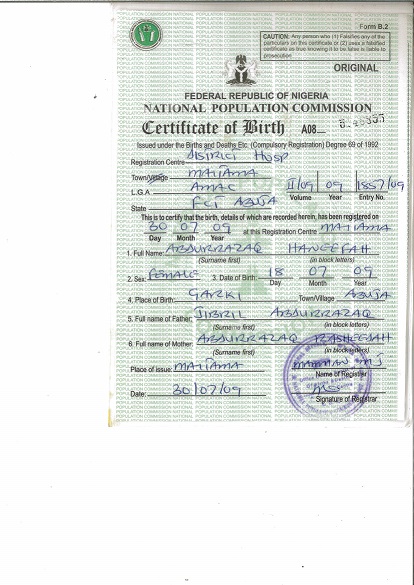 Form B.2
CAUTION: Any person who (1) Falsifies any of the
particulars on this certificate or (2) uses a falsified
certificate as true knowing it to be false is liable to
prosecution
ORIGINAL
FEDERAL REPUBLIC OF NIGERIA
NATIONAL POPULATION COMMISSION
Certificate of Birth A08
Issued under the Births and Deaths Etc. (Compulsory Registration) Degree 69 of 1992
Registration Centre DISTRICT HOSP
Town/Village MAITAMA
L.G.A. AMAC II/09 09 1857/09
Volume Year Entry No.
State FCT ABUJA
This is to certify that the birth, details of which are recorded herein, has been registered on
30 07 09 at this Registration Centre MAITAMA
Day Month Year
1. Full Name: ABDURRAZAQ HANEEFAH
(Surname first) (in block letters)
2. Sex FEMALE 3. Date of Birth: 18 07 09
Day Month Year
4. Place of Birth: GARKI Town/Village ABUJA
5. Full name of Father: JIBRIL ABDURRAZAQ
(Surname first) (in block letters)
6. Full name of Mother: ABDURRAZAQ RASHEEDAH
(Surname first) (in block letters)
Place of issue: MAITAMA MAMMAN M J
Name of Registrar
Date: 30/07/09
Signature of Registrar